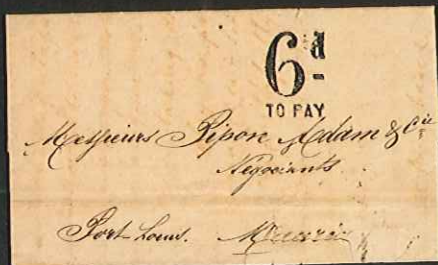 6d
TO PAY
Messieurs Pipon Adam & Cie
Négociants
Port Louis. Maurice